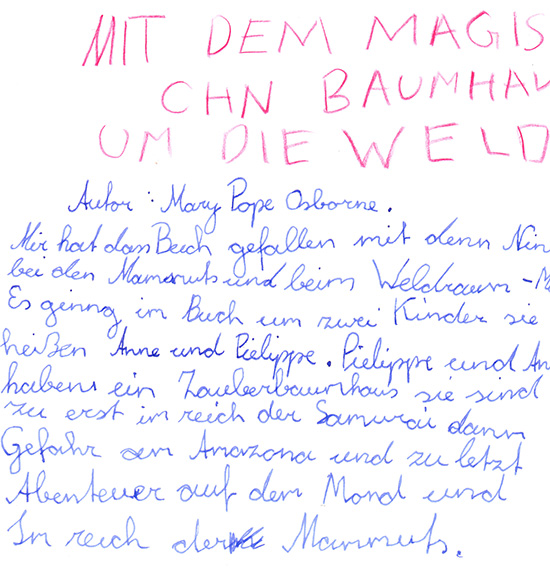 MIT DEM MAGIS
CHN BAUMHAU
UM DIE WELD
Autor : Mary Pope Osborne.
Mir hat dass Buch gefallen mit denn Nin
bei den Mammuts und beim Weldraum - M
Es ginng im Buch um zwei Kinder sie
heißen Anne und Pielippe. Pielippe und An
haben ein Zauberbaumhaus sie sind
zu erst im reich der Samurai dann
Gefahr am Amazona und zu letzt
Abenteuer auf dem Mond und
Im reich der Mammuts.